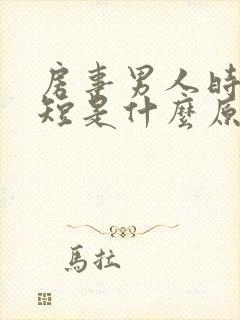 房事男人時
短是什麼原
馬拉